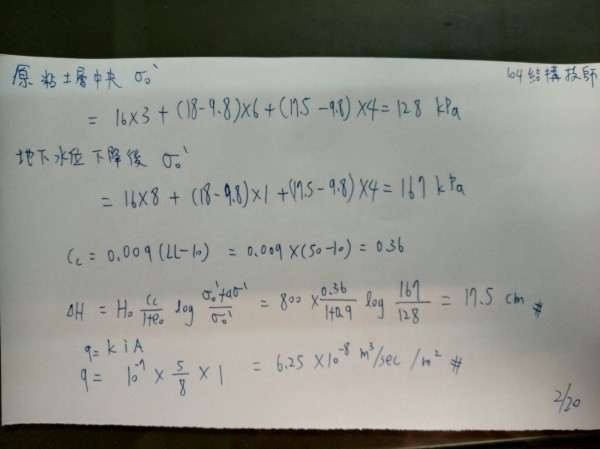 原粘土層中央 σ₀'
104結構技師
= 16×3 + (18-9.8)×6 + (17.5-9.8)×4 = 128 kPa
地下水位下降後 σ₀'
= 16×8 + (18-9.8)×1 + (17.5-9.8)×4 = 167 kPa
Cc = 0.009 (LL-10) = 0.009×(50-10) = 0.36
ΔH = H₀ Cc/(1+e₀) log (σ₀'+Δσ')/σ₀' = 800 × 0.36/(1+0.9) log 167/128 = 17.5 cm #
q = k i A
q = 10⁻⁷ × 5/8 × 1 = 6.25 ×10⁻⁸ m³/sec /m² #
2/20